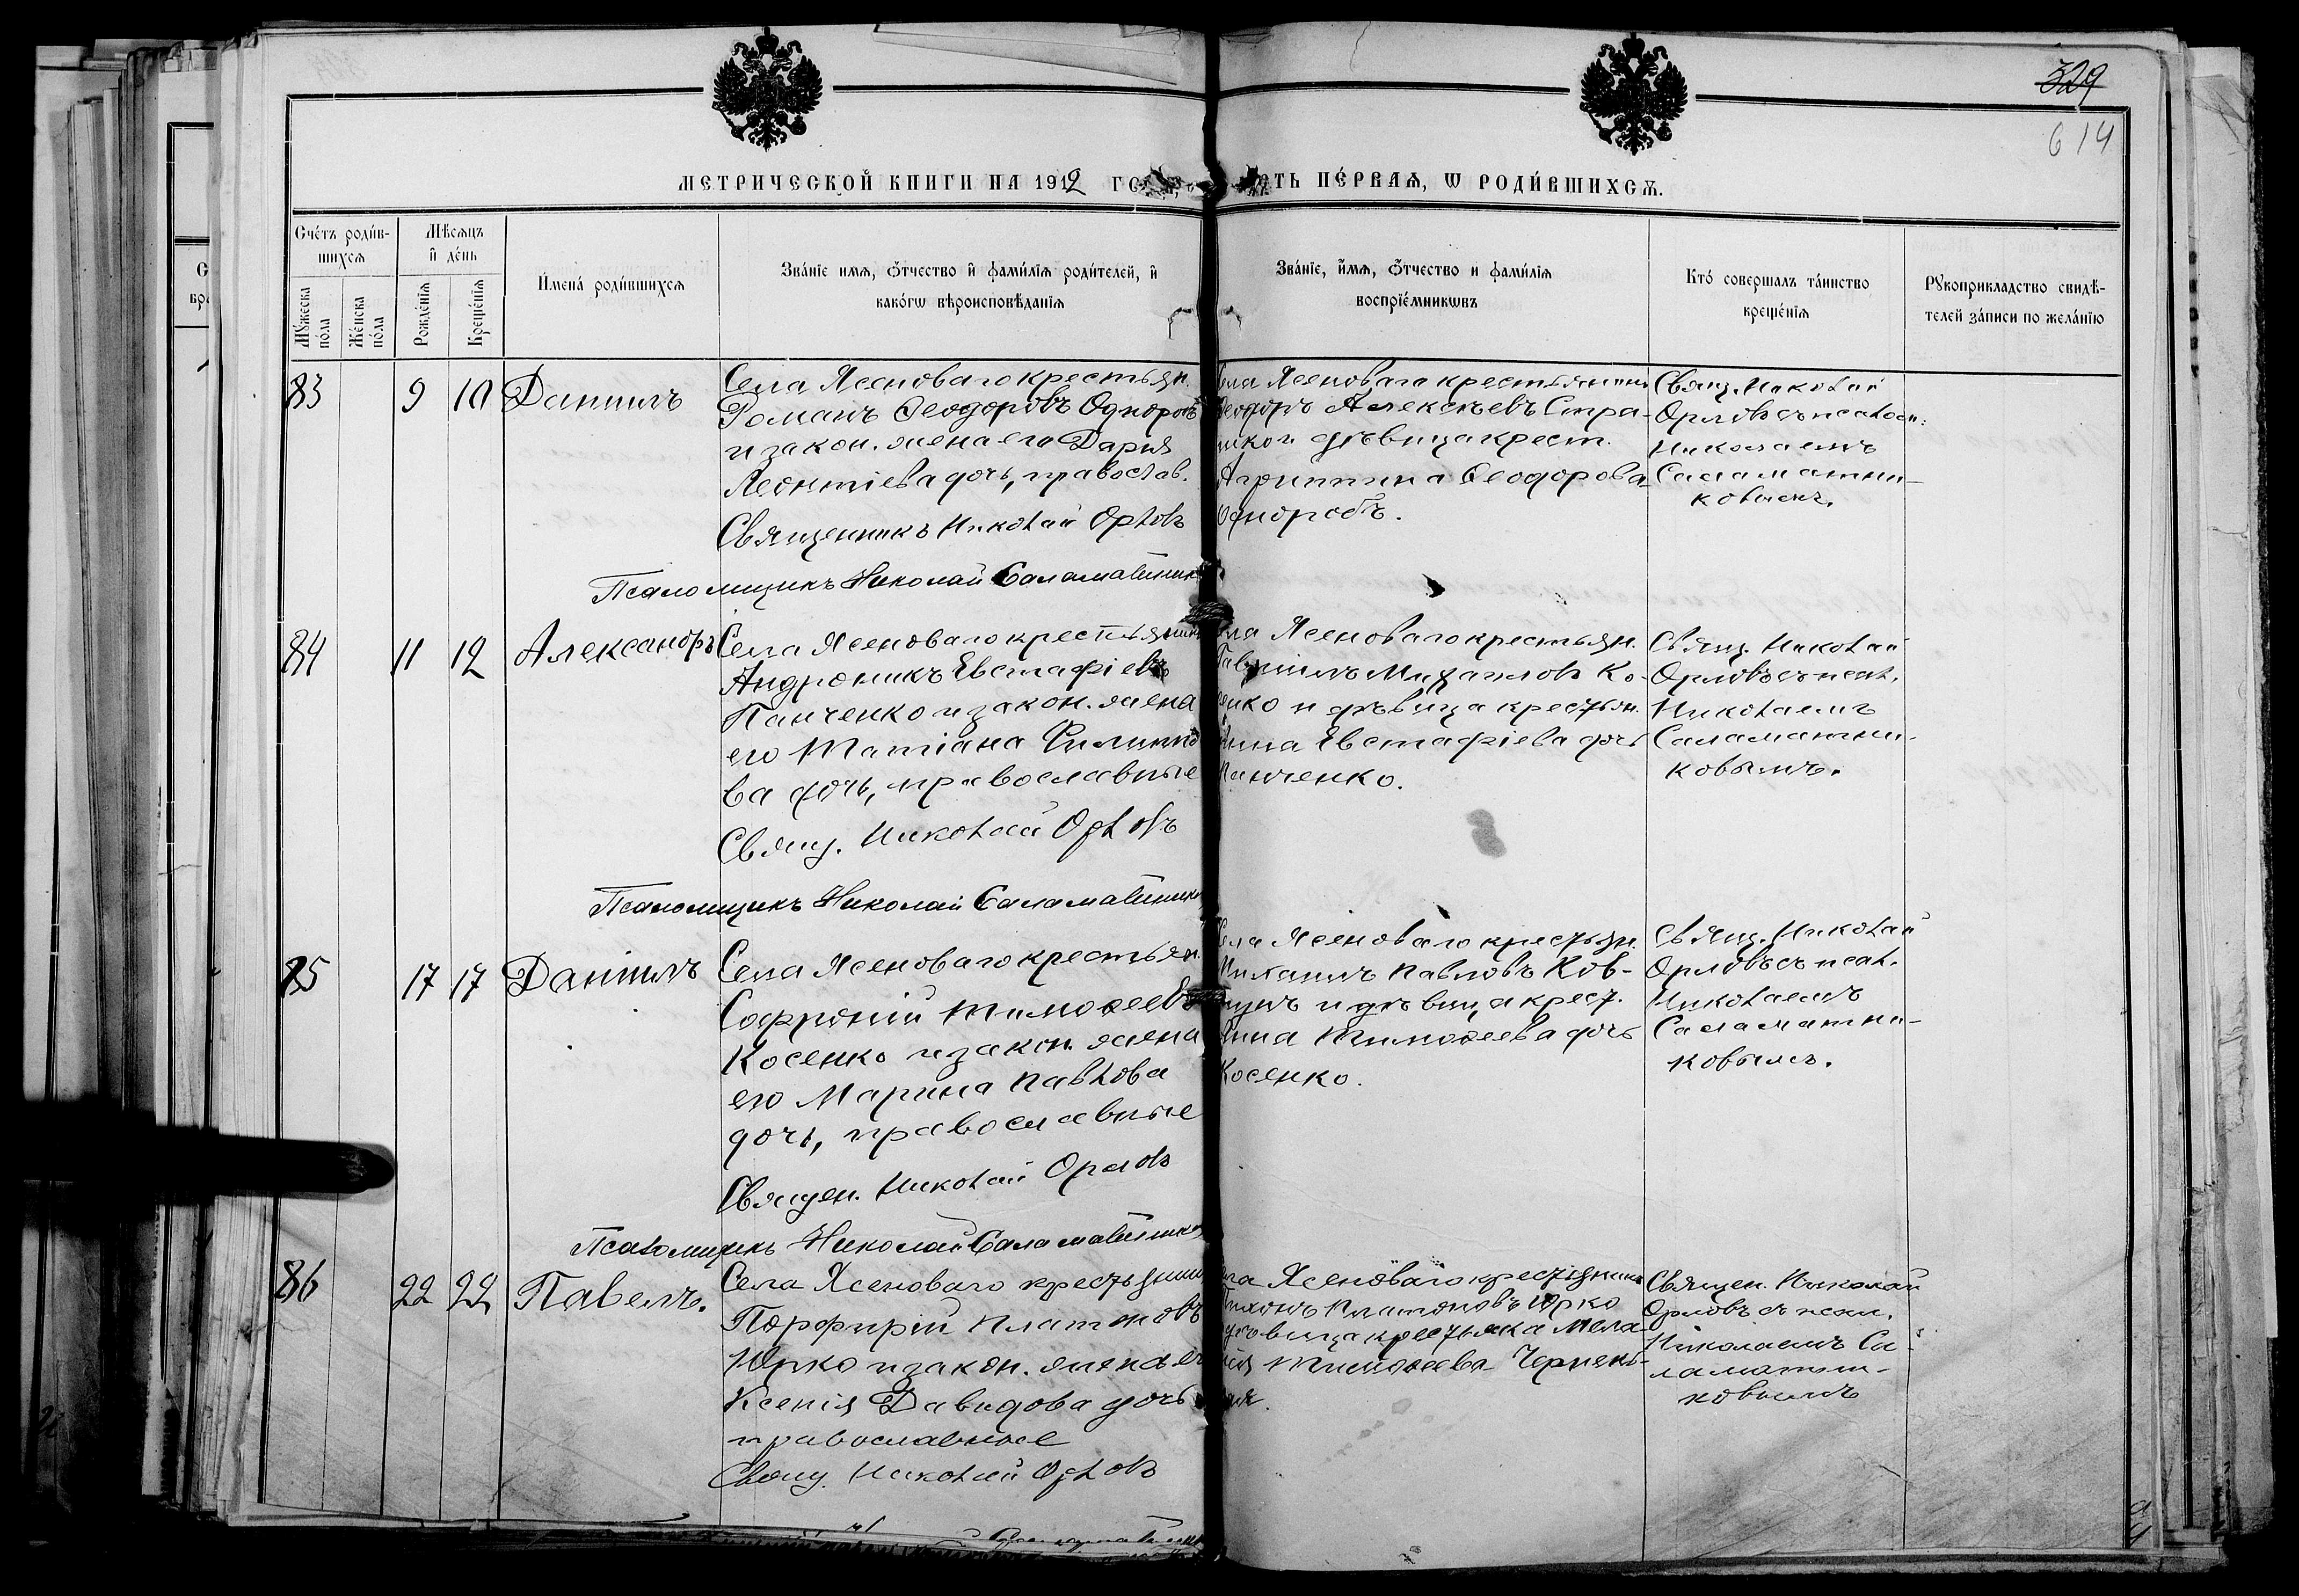 329
614
МЕТРИЧЕСКОЙ КНИГИ НА 1912
ПЕ́РВАЯ, Ѡ РОДИ́ВШИХСЯ.
Сче́тъ роди́в-
шихся
Мѣ́сяцъ
и҆ де́нь
Мꙋ́жеска
по́ла
Же́нска
по́ла
Рожде́нїя
Креще́нїя
И҆мена̀ роди́вшихся
Зва́нїе имя, ѻ҆́тчество и҆ фами́лїя роди́телей, и҆
како́гѡ вѣроисповѣ́данїя
Зва́нїе, и҆́мя, ѻ҆́тчество и фами́лїя
воспрїе́мникѡвъ
Кто́ совершалъ та́инство
креще́нїя
Рꙋкоприкладство свидѣ́-
телей за́писи по жела́нїю
83
9 10
Даниилъ
Села Ясеноваго крестьян.
Романъ Ѳеодоровъ Однорогъ
и закон. жена его Дарья
Леонтіева дочь, православ.
Священникъ Николай Орловъ
Псаломщикъ Николай
Ясеноваго крестьянинъ
Алексѣевъ Стра-
и дѣвица крест.
Агриппина Ѳеодорова
Свящ. Николай
Орловъ съ псалом.
Николаемъ
Саламатни-
ковымъ.
84
11 12
Александръ
Села Ясеноваго крестьянинъ
Андроникъ Евстафіевъ
Панченко и закон. жена
его Татіана Филиппо
ва дочь, православные
Свящ. Николай Орловъ
Псаломщикъ Николай
Ясеноваго крестьян.
Михаиловъ Ко-
и дѣвица крестьян.
Евстафіева дочь
Панченко.
Свящ. Николай
Орловъ съ псал.
Николаемъ
Саламатни-
ковымъ.
85
17 17
Даніилъ
Села Ясеноваго крестьян.
Софроній Тимоѳеевъ
Косенко и закон. жена
его Марина Павлова
дочь, православные
Священ. Николай Орловъ
Псаломщикъ Николай
Ясеноваго крестьян.
Михаилъ Павловъ Ков-
и дѣвица крест.
Тимоѳеева дочь
Косенко.
Свящ. Николай
Орловъ съ псал.
Николаемъ
Саламатни-
ковымъ.
86
22 22
Павелъ.
Села Ясеноваго крестьянин
Порфирій Платоновъ
Юрко и закон. жена его
Ксенія Давидова дочь
православные
Свящ. Николай Орловъ
Ясеноваго крестьянинъ
Платоновъ Юрко
дѣвица крестьянка Мела-
Тимоѳеева
Священ. Николай
Орловъ съ псал.
Николаемъ Са-
ламатни-
ковымъ